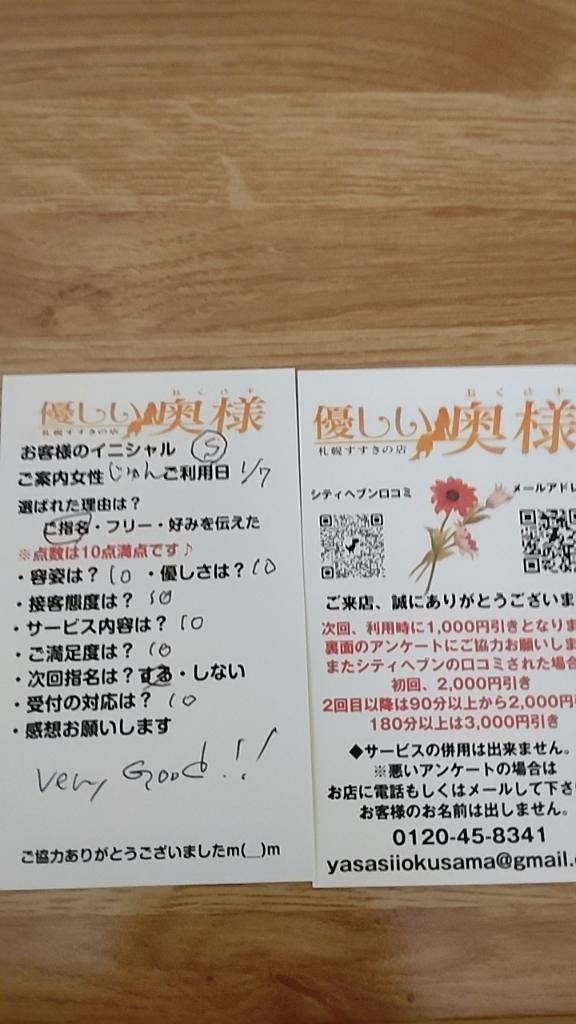 おくさま
優しい奥様
札幌すすきの店
お客様のイニシャル S
ご案内女性 じゅん ご利用日 1/7
選ばれた理由は?
ご指名・フリー・好みを伝えた
※点数は10点満点です♪
・容姿は? 10 ・優しさは? 10
・接客態度は? 10
・サービス内容は? 10
・ご満足度は? 10
・次回指名は?する・しない
・受付の対応は? 10
・感想お願いします
very Good!!
ご協力ありがとうございましたm(__)m
おくさま
優しい奥様
札幌すすきの店
シティヘブン口コミ
メールアドレ
ご来店、誠にありがとうございま
次回、利用時に1,000円引きとなりま
裏面のアンケートにご協力お願いしま
またシティヘブンの口コミされた場合
初回、2,000円引き
2回目以降は90分以上から2,000円
180分以上は3,000円引き
◆サービスの併用は出来ません。
※悪いアンケートの場合は
お店に電話もしくはメールして下さ
お客様のお名前は出しません。
0120-45-8341
yasasiiokusama@gmail.